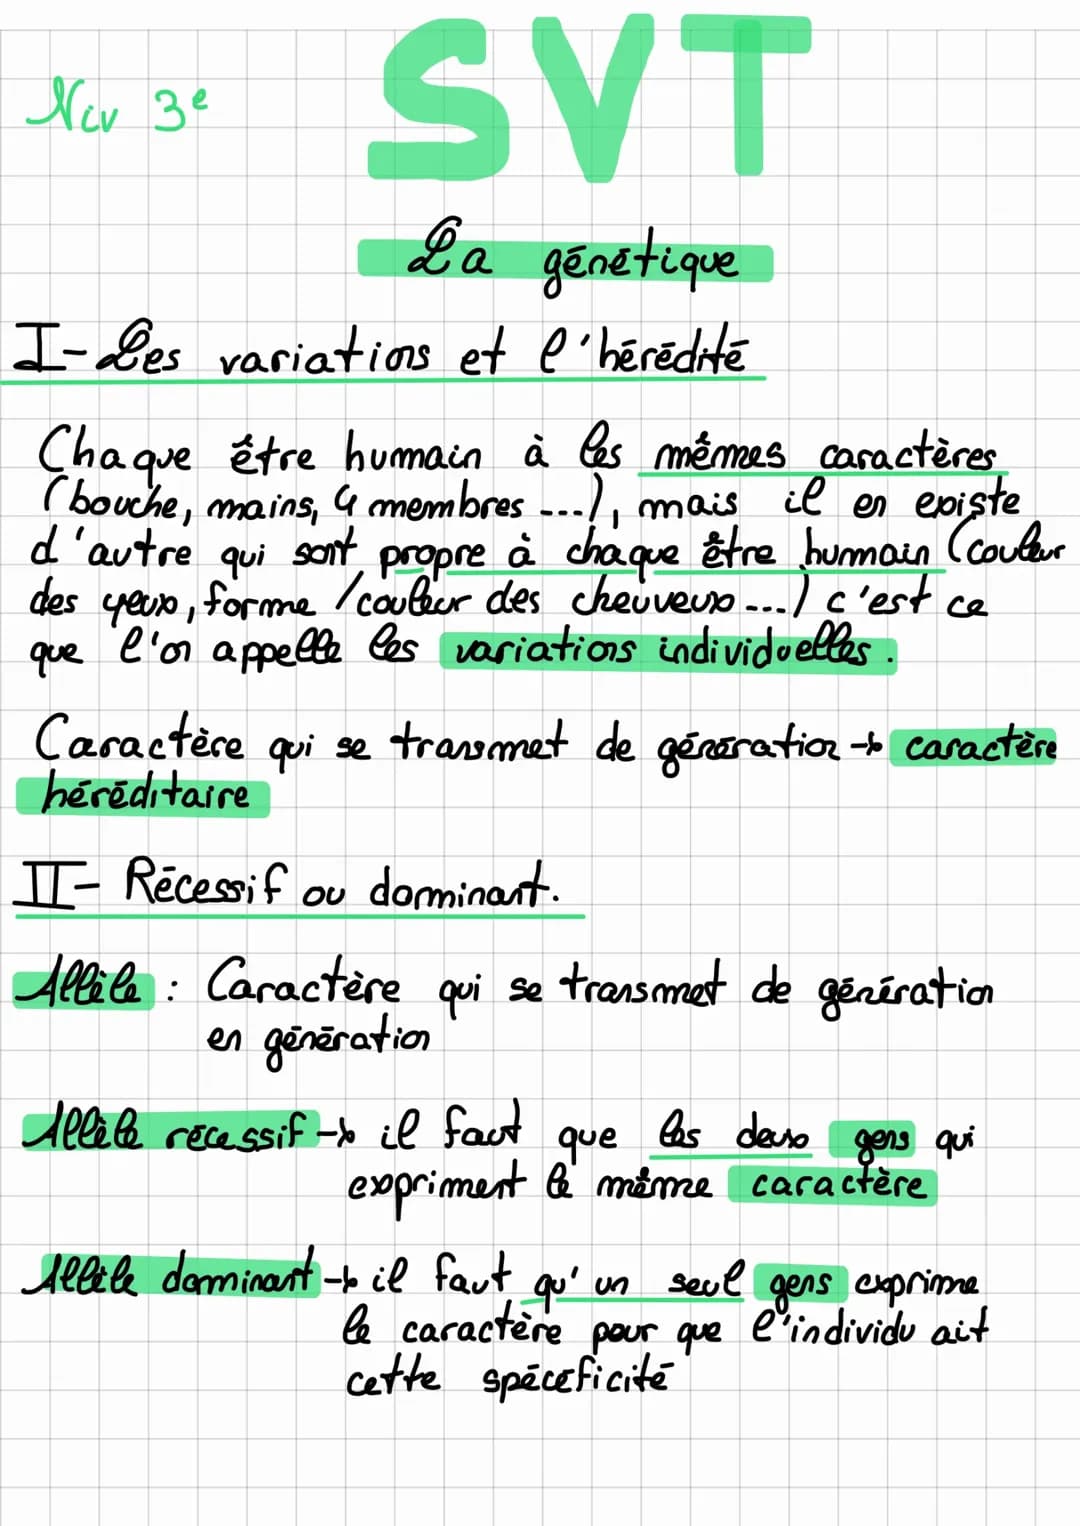 SVT
Niv 3e
La génétique
I- Les variations et l'hérédité
Chaque être humain à les mêmes caractères
(bouche, mains, 4 membres ...), mais il en existe
d'autre qui sont propre à chaque être humain (couleur
des yeux, forme / couleur des cheuveux ...) c'est ce
que l'on appelle les variations individuelles.
Caractère qui se transmet de génération → caractère
héréditaire
II- Récessif ou dominant.
Allèle : Caractère qui se transmet de génération
en génération
Allèle récessif → il faut que les deux gens qui
expriment le même caractère
Allèle dominant → il faut qu'un seul gens exprime
le caractère pour que l'individu ait
cette spéceficité